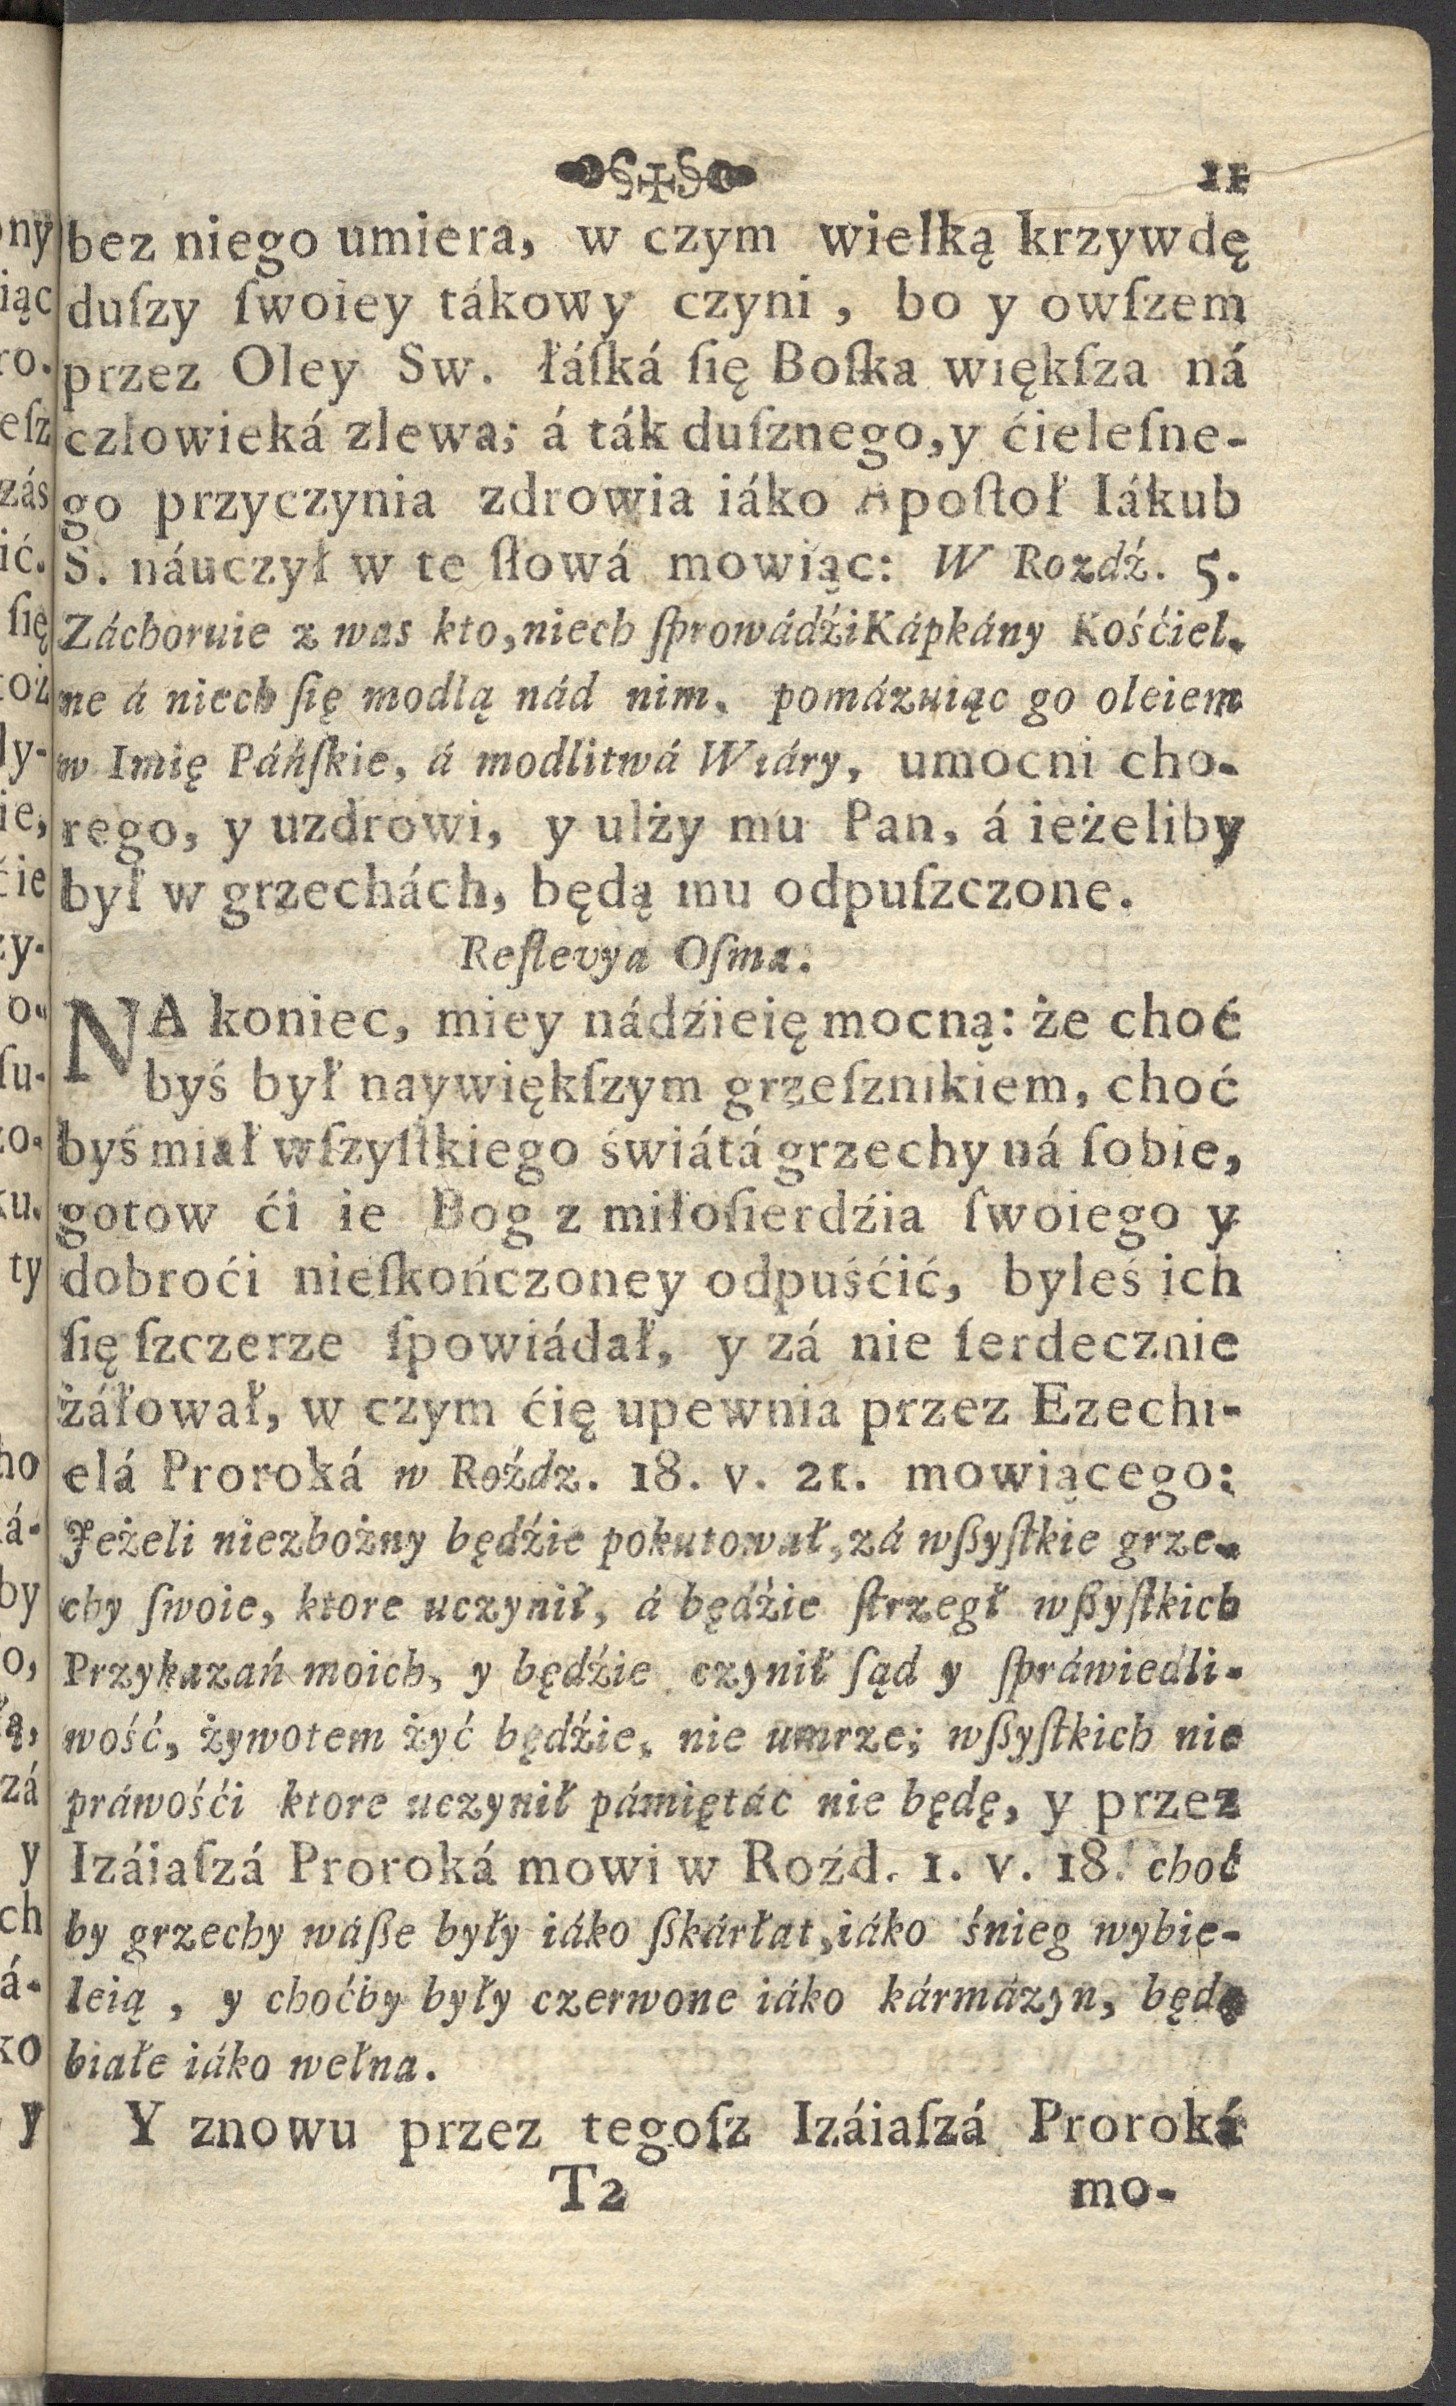 11
bez niego umiera, w czym wielką krzywdę
duſzy ſwoiey tákowy czyni, bo y owſzem
przez Oley Sw. łáſká ſię Boſka więkſza ná
człowieká zlewa; á ták duſznego, y ćieleſne-
go przyczynia zdrowia iáko Apoſtoł Iákub
S. náuczył w te ſłowá mowiąc: W Rozdź. 5.
Záchoruie z was kto, niech ſprowádźi Kápkány Kośćiel-
ne á niech ſię modlą nád nim, pomázuiąc go oleiem
w Imię Páńſkie, á modlitwá Wiáry, umocni cho-
rego, y uzdrowi, y ulży mu Pan, á ieżeliby
był w grzechách, będą mu odpuſzczone.
Reflevya Oſma.
NA koniec, miey nádźieię mocną: że choć
byś był naywiękſzym grzeſznikiem, choć
byś miał wſzyſtkiego świátá grzechy ná ſobie,
gotow ći ie Bog z miłoſierdźia ſwoiego y
dobroći nieſkończoney odpuśćić, byleś ich
ſię ſzczerze ſpowiádał, y zá nie ſerdecznie
żáłował, w czym ćię upewnia przez Ezechi-
elá Proroká w Roździ. 18. v. 21. mowiącego:
Jeżeli niezbożny będźie pokutował, zá wßyſtkie grze-
chy ſwoie, ktore uczynił, á będźie ſtrzegł wßyſtkich
Przykazań moich, y będźie czynił ſąd y ſpráwiedli-
wość, żywotem żyć będźie, nie umrze; wßyſtkich nie
práwośći ktore uczynił pámiętác nie będę, y przez
Izáiaſzá Proroká mowi w Roźd. 1. v. 18. choć
by grzechy wáße były iáko ßkárłat, iáko śnieg wybie-
leią, y choćby były czerwone iáko kármázyn, będą
białe iáko wełna.
Y znowu przez tegoſz Izáiaſzá Proroká
T2 mo-